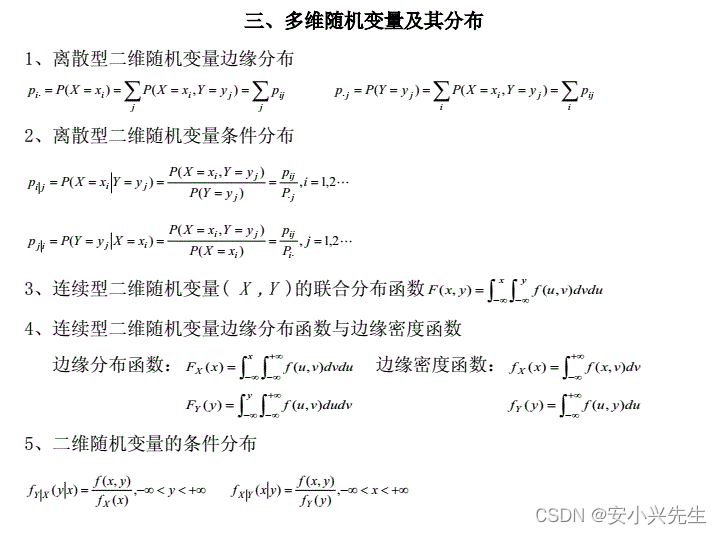 三、多维随机变量及其分布
1、离散型二维随机变量边缘分布
p_{i·} = P(X = x_i) = ∑_j P(X = x_i, Y = y_j) = ∑_j p_{ij}    p_{·j} = P(Y = y_j) = ∑_i P(X = x_i, Y = y_j) = ∑_i p_{ij}
2、离散型二维随机变量条件分布
p_{i|j} = P(X = x_i | Y = y_j) = P(X = x_i, Y = y_j) / P(Y = y_j) = p_{ij} / P_{·j}, i = 1,2⋯
p_{j|i} = P(Y = y_j | X = x_i) = P(X = x_i, Y = y_j) / P(X = x_i) = p_{ij} / P_{i·}, j = 1,2⋯
3、连续型二维随机变量( X ,Y )的联合分布函数 F(x, y) = ∫_{−∞}^{x} ∫_{−∞}^{y} f(u,v)dvdu
4、连续型二维随机变量边缘分布函数与边缘密度函数
边缘分布函数： F_X(x) = ∫_{−∞}^{x} ∫_{−∞}^{+∞} f(u,v)dvdu    边缘密度函数： f_X(x) = ∫_{−∞}^{+∞} f(x,v)dv
F_Y(y) = ∫_{−∞}^{y} ∫_{−∞}^{+∞} f(u,v)dudv    f_Y(y) = ∫_{−∞}^{+∞} f(u,y)du
5、二维随机变量的条件分布
f_{Y|X}(y|x) = f(x,y) / f_X(x), −∞ < y < +∞    f_{X|Y}(x|y) = f(x,y) / f_Y(y), −∞ < x < +∞
CSDN @安小兴先生